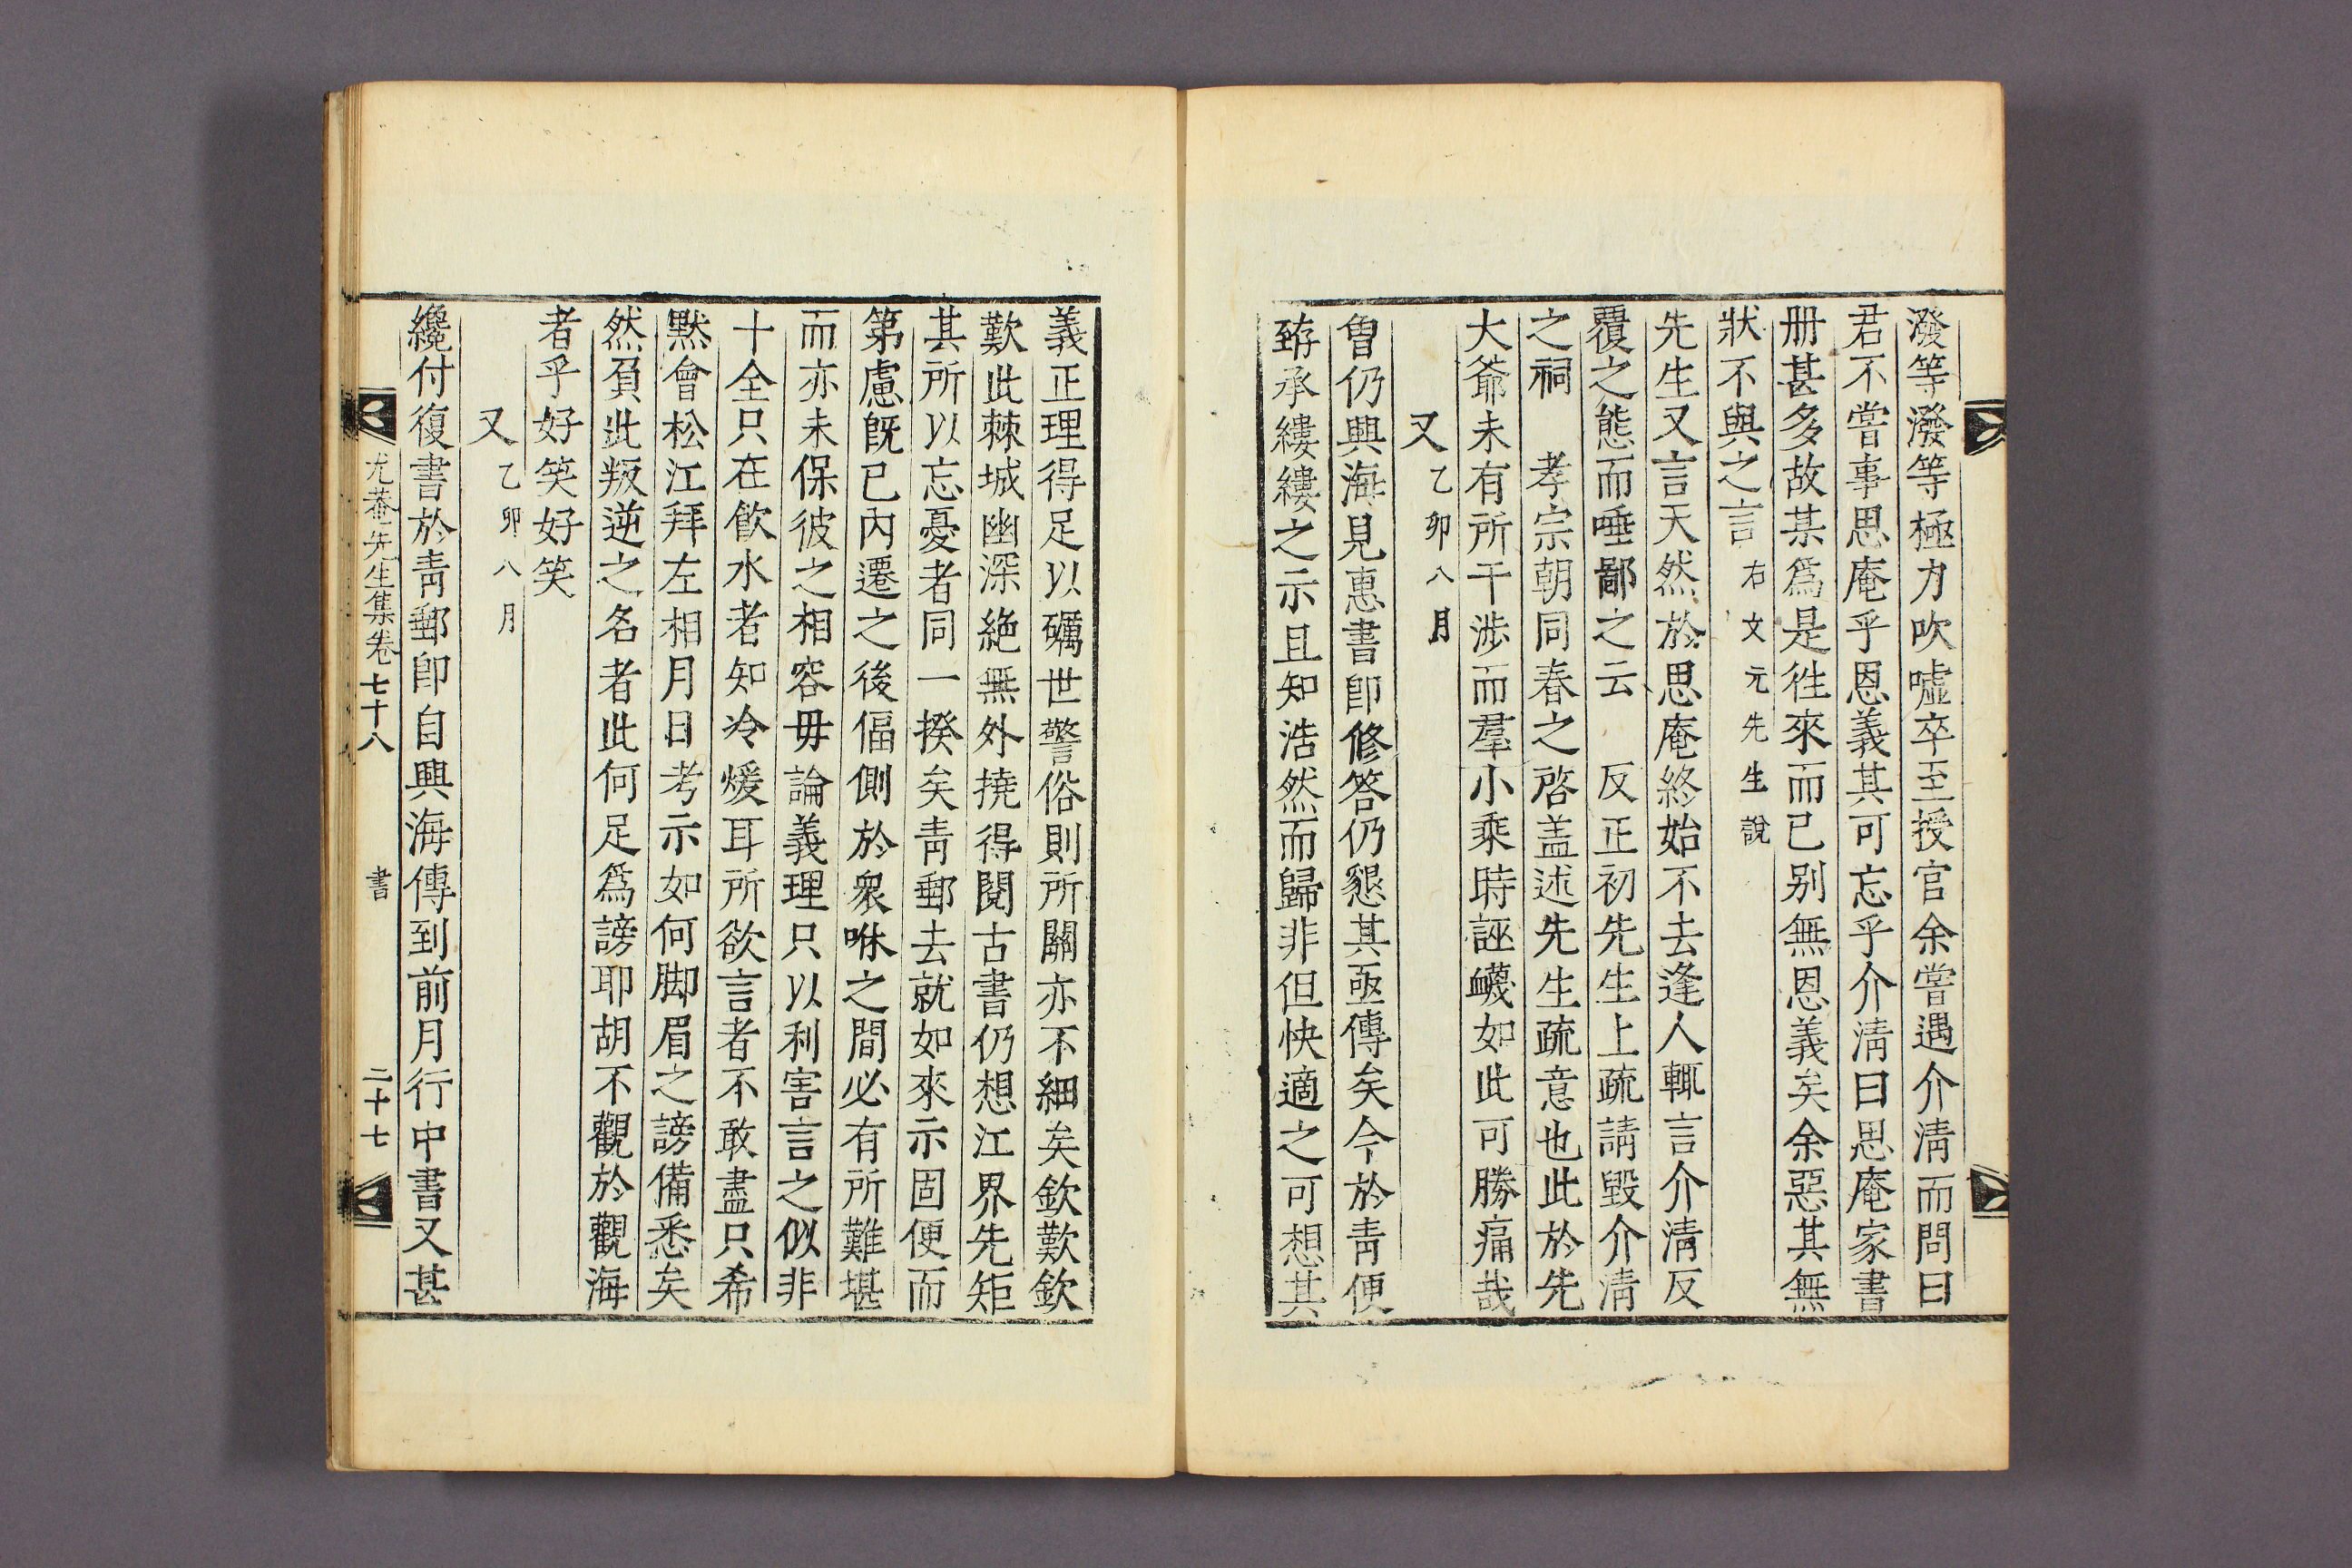 潑等潑等極力吹噓卒至授官余嘗遇介淸而問曰
君不嘗事思庵乎恩義其可忘乎介淸曰思庵家書
册甚多故某爲是徃來而已别無恩義矣余惡其無
狀不與之言右文元先生說
先生又言天然於思庵終始不去逢人輒言介淸反
覆之態而唾鄙之云 反正初先生上疏請毀介淸
之祠 孝宗朝同春之啓盖述先生疏意也此於先
大爺未有所干涉而羣小乘時誣衊如此可勝痛哉
又乙卯八月
曾仍興海見惠書卽修答仍懇其亟傳矣今於靑便
荐承縷縷之示且知浩然而歸非但快適之可想其
義正理得足以礪世警俗則所關亦不細矣欽歎欽
歎此棘城幽深絶無外撓得閱古書仍想江界先矩
其所以忘憂者同一揆矣靑郵去就如來示固便而
第慮旣已內遷之後偪側於衆咻之間必有所難堪
而亦未保彼之相容毋論義理只以利害言之似非
十全只在飮水者知冷煖耳所欲言者不敢盡只希
默會松江拜左相月日考示如何脚眉之謗備悉矣
然負此叛逆之名者此何足爲謗耶胡不觀於觀海
者乎好笑好笑
又乙卯八月
纔付復書於靑郵卽自興海傳到前月行中書又甚
尤菴先生集卷七十八 書 二十七